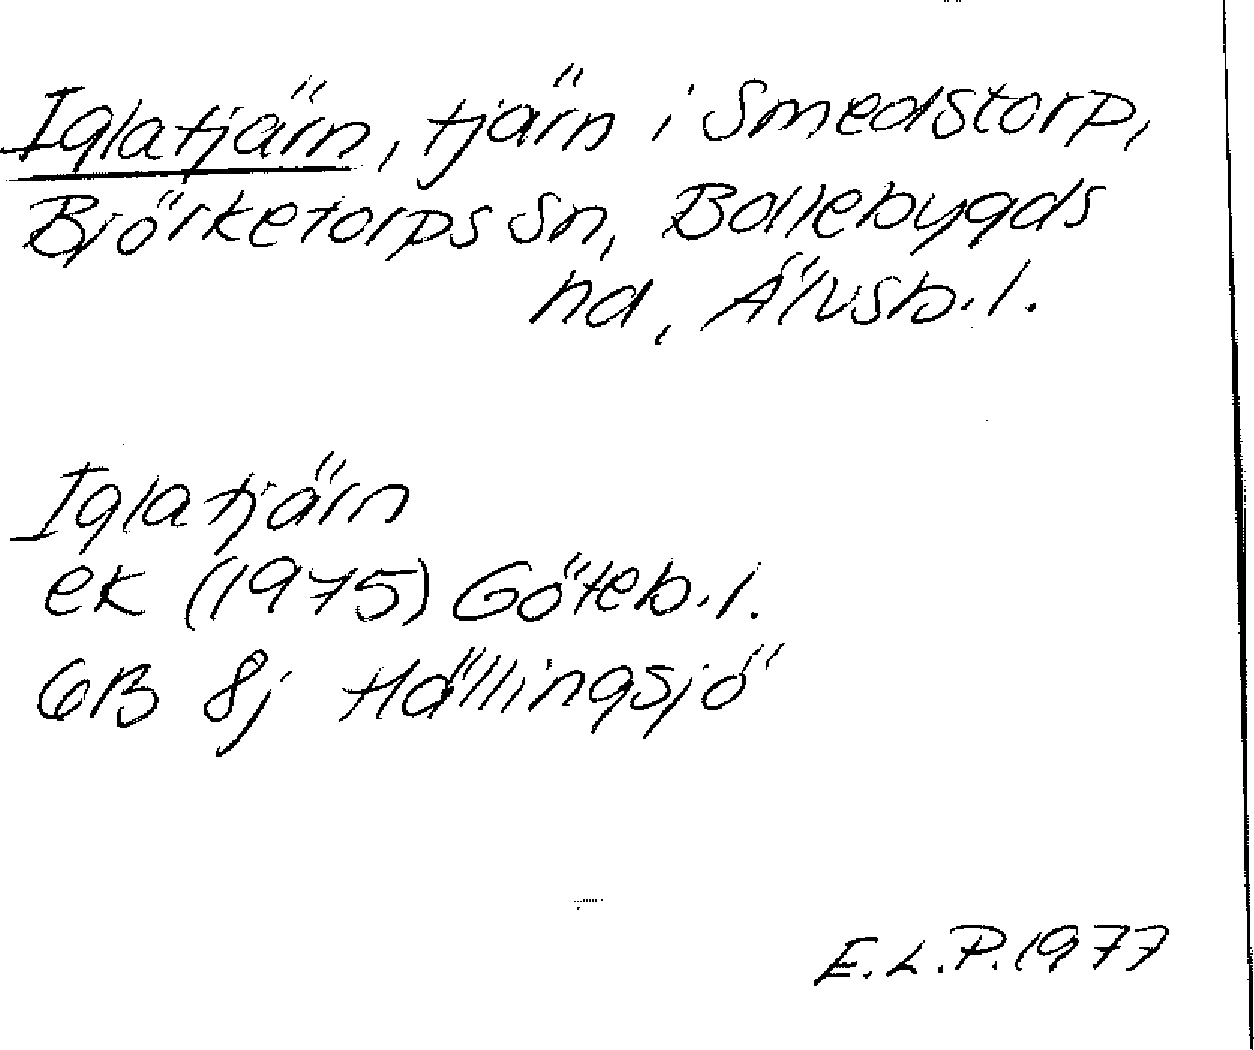 Iglatjärn, tjärn i Smedstorp,
Björketorps sn, Bollebygds
hd, Älvsb.l.
Iglatjärn
ek (1975) Göteb.l.
6B 8j Hällingsjö
E.L.P.1977